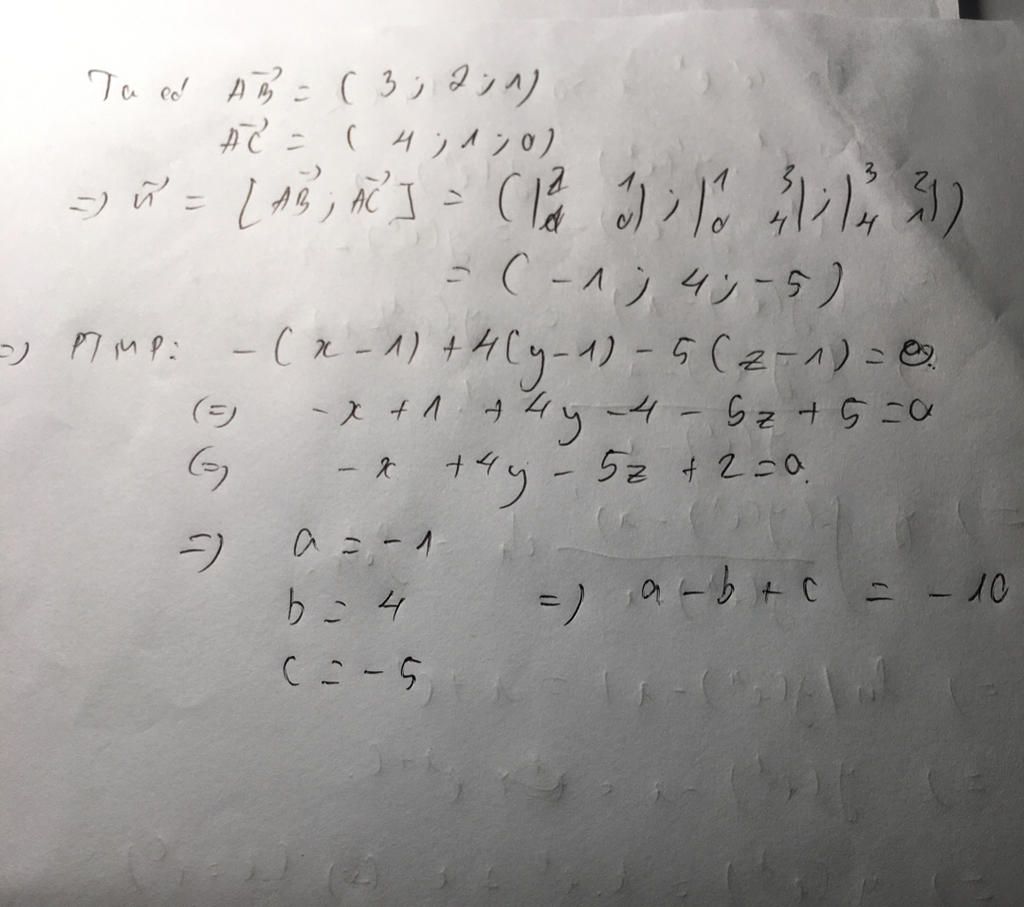 Ta có AB→ = (3; 2; 1)
AC→ = (4; 1; 0)
=> n→ = [AB→; AC→] = (|2 1; 1 0|; |1 3; 0 4|; |3 2; 4 1|)
= (-1; 4; -5)
=> PTMP: -(x-1) + 4(y-1) - 5(z-1) = 0.
(=) -x + 1 + 4y - 4 - 5z + 5 = 0
(=) -x + 4y - 5z + 2 = 0.
=> a = -1
b = 4 => a - b + c = -10
c = -5